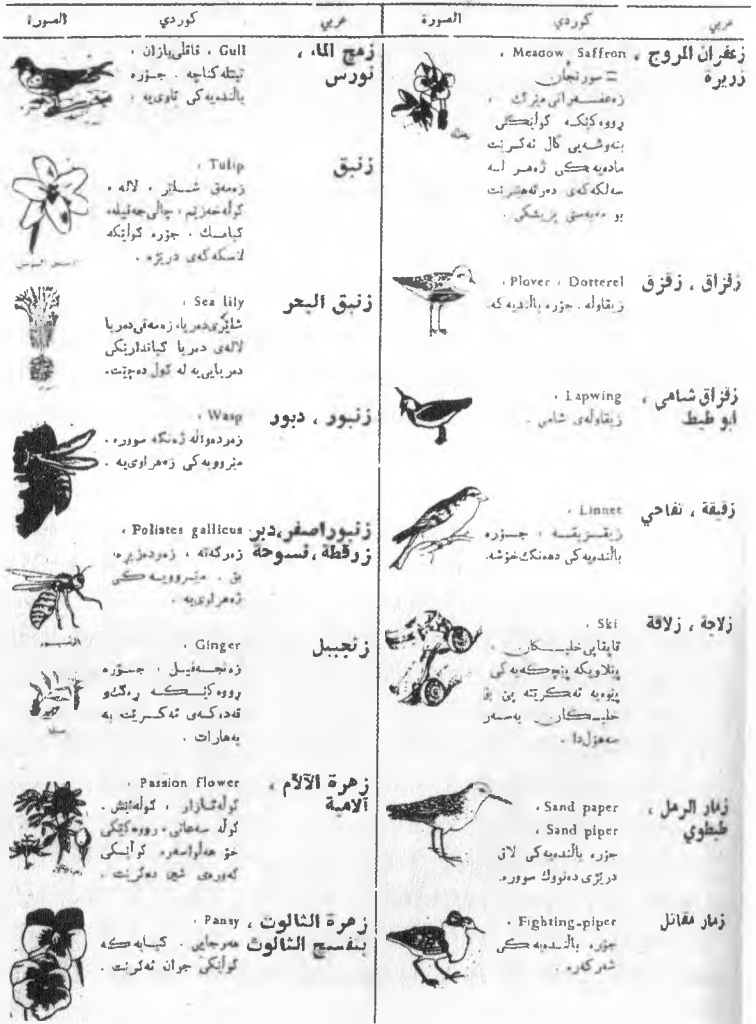 عربي كوردي الصورة
زعفران المروج ،
زريرة
Meadow Saffron ،
= سورنجان
زەعفەرانی مێرگ ،
ڕووەکێکە گوڵێکی
بنەوشەیی گاڵ ئەگرێت
مادەیەکی ژەهر لە
سەلکەکەی دەرئەهێنرێت
بۆ مەبەستی پزیشکی .
زقزاق ، زقزق
Plover ، Dotterel ،
زیقاوڵە . جۆرە باڵندەیەکە.
زقزاق شامي ،
ابو طيط
Lapwing ،
زیقاوڵەی شامی .
زقيقة ، تفاحي
Linnet ،
زیقزیقە ، جۆرە
باڵندەیەکی دەنگ خۆشە.
زلاجة ، زلاقة
Ski ،
قاپقاپی خلیسکان ،
پێڵاوێکە
پێوەیە ئەکرێتە پێ بۆ
خلیسکان بەسەر
سەهۆڵدا .
زمار الرمل ،
طيطوي
Sand paper ،
Sand piper ،
جۆرە باڵندەیەکی لاق
درێژی دەنووک سوورە.
زمار مقاتل
Fighting-piper ،
جۆرە باڵندەیەکی
شەڕکەرە .
عربي كوردي الصورة
زمج الماء ،
نورس
Gull ، قاقڵی بازان ،
جۆرە
باڵندەیەکی ئاوی یە .
زنبق
Tulip ،
زەمەق شلێر ، لالە ،
گیاەک ، جۆرە گوڵێکە
لاسکەکەی درێژە .
زنبق البحر
Sea lily ،
شلێری دەریا، زەمەقی دەریا
لالەی دەریا گیاندارێکی
دەریایی یە لە گوڵ دەچێت.
زنبور ، دبور
Wasp ،
زەردەواڵە ژەنگە سوورە .
مێرووویەکی ژەهراوی یە .
زنبور اصفر، دبر
زرقطة ،
Polistes gallicus ،
زەرگەتە ، زەردەزیرە،
بق . مێروویەکی
ژەهراوی یە .
زنجبيل
Ginger ،
زەنجەفیل ، جۆرە
ڕووەکێکە ڕەگ و
قەدەکەی ئەکرێت بە
بەهارات .
زهرة الآلام ،
الامية
Passion flower ،
گوڵەئازار ، گوڵەئێش .
گوڵە سەعاتی، ڕووەکێکی
خۆ هەڵواسەرە گوڵێکی
گەورەی شین دەگرێت .
زهرة الثالوث ،
بنفسج الثالوث
Pansy ،
هەرجایی . گیایەکە
گوڵێکی جوان ئەگرێت .